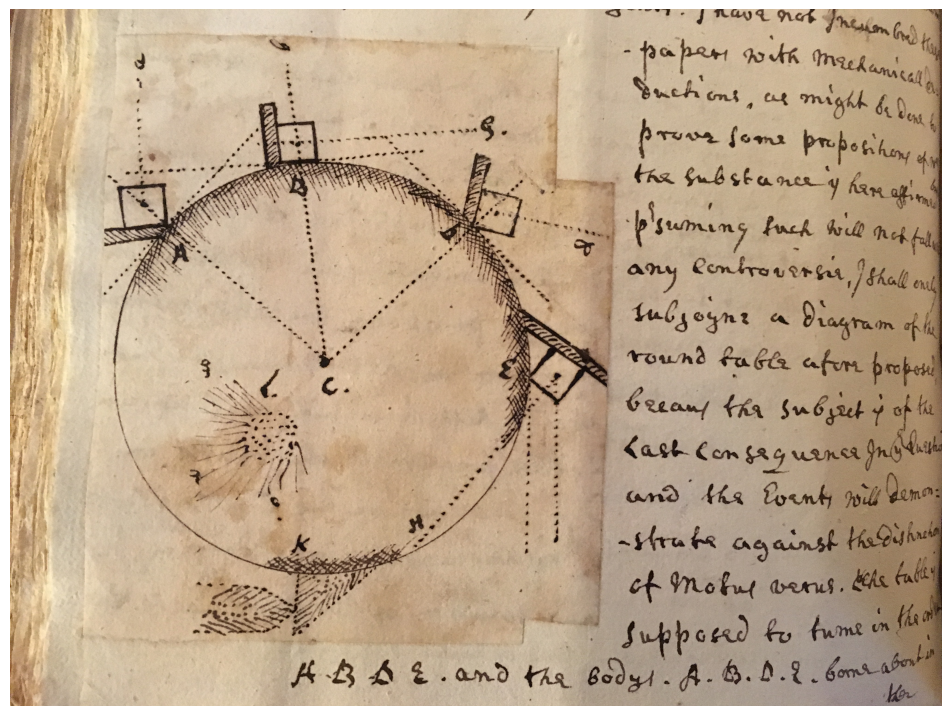 I have not Incumbred these
papers with mechanicall de
ductions, as might be done to
prove some propositions of
the substance is here affirmed
p'suming such will not fall
any Controversie, I shall onely
subjoyne a diagram of the
round table afore proposed
becaus the subject is of the
Last Consequence In ye Questi
and the Events will demon=
-strate against the distinction
of Motus verus. the table is
supposed to turne in the order
A. B D E. and the bodys. A. B. D. E. borne about in
a
b
G.
B
A
D
C.
E
L
H.
K